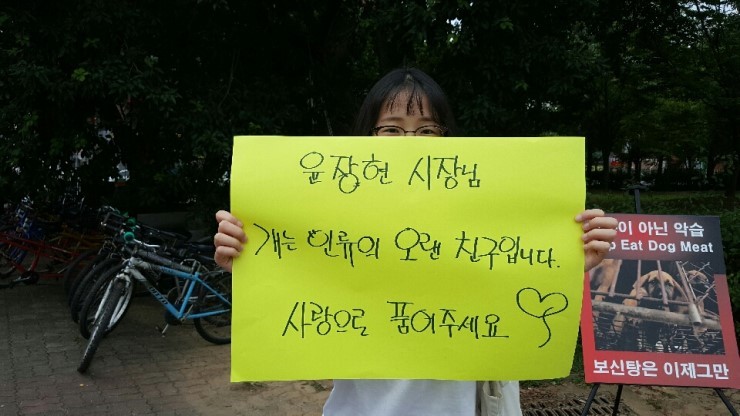 윤장현 시장님
개는 인류의 오랜 친구입니다.
사랑으로 품어주세요
이 아닌 악습
Eat Dog Meat
보신탕은 이제그만